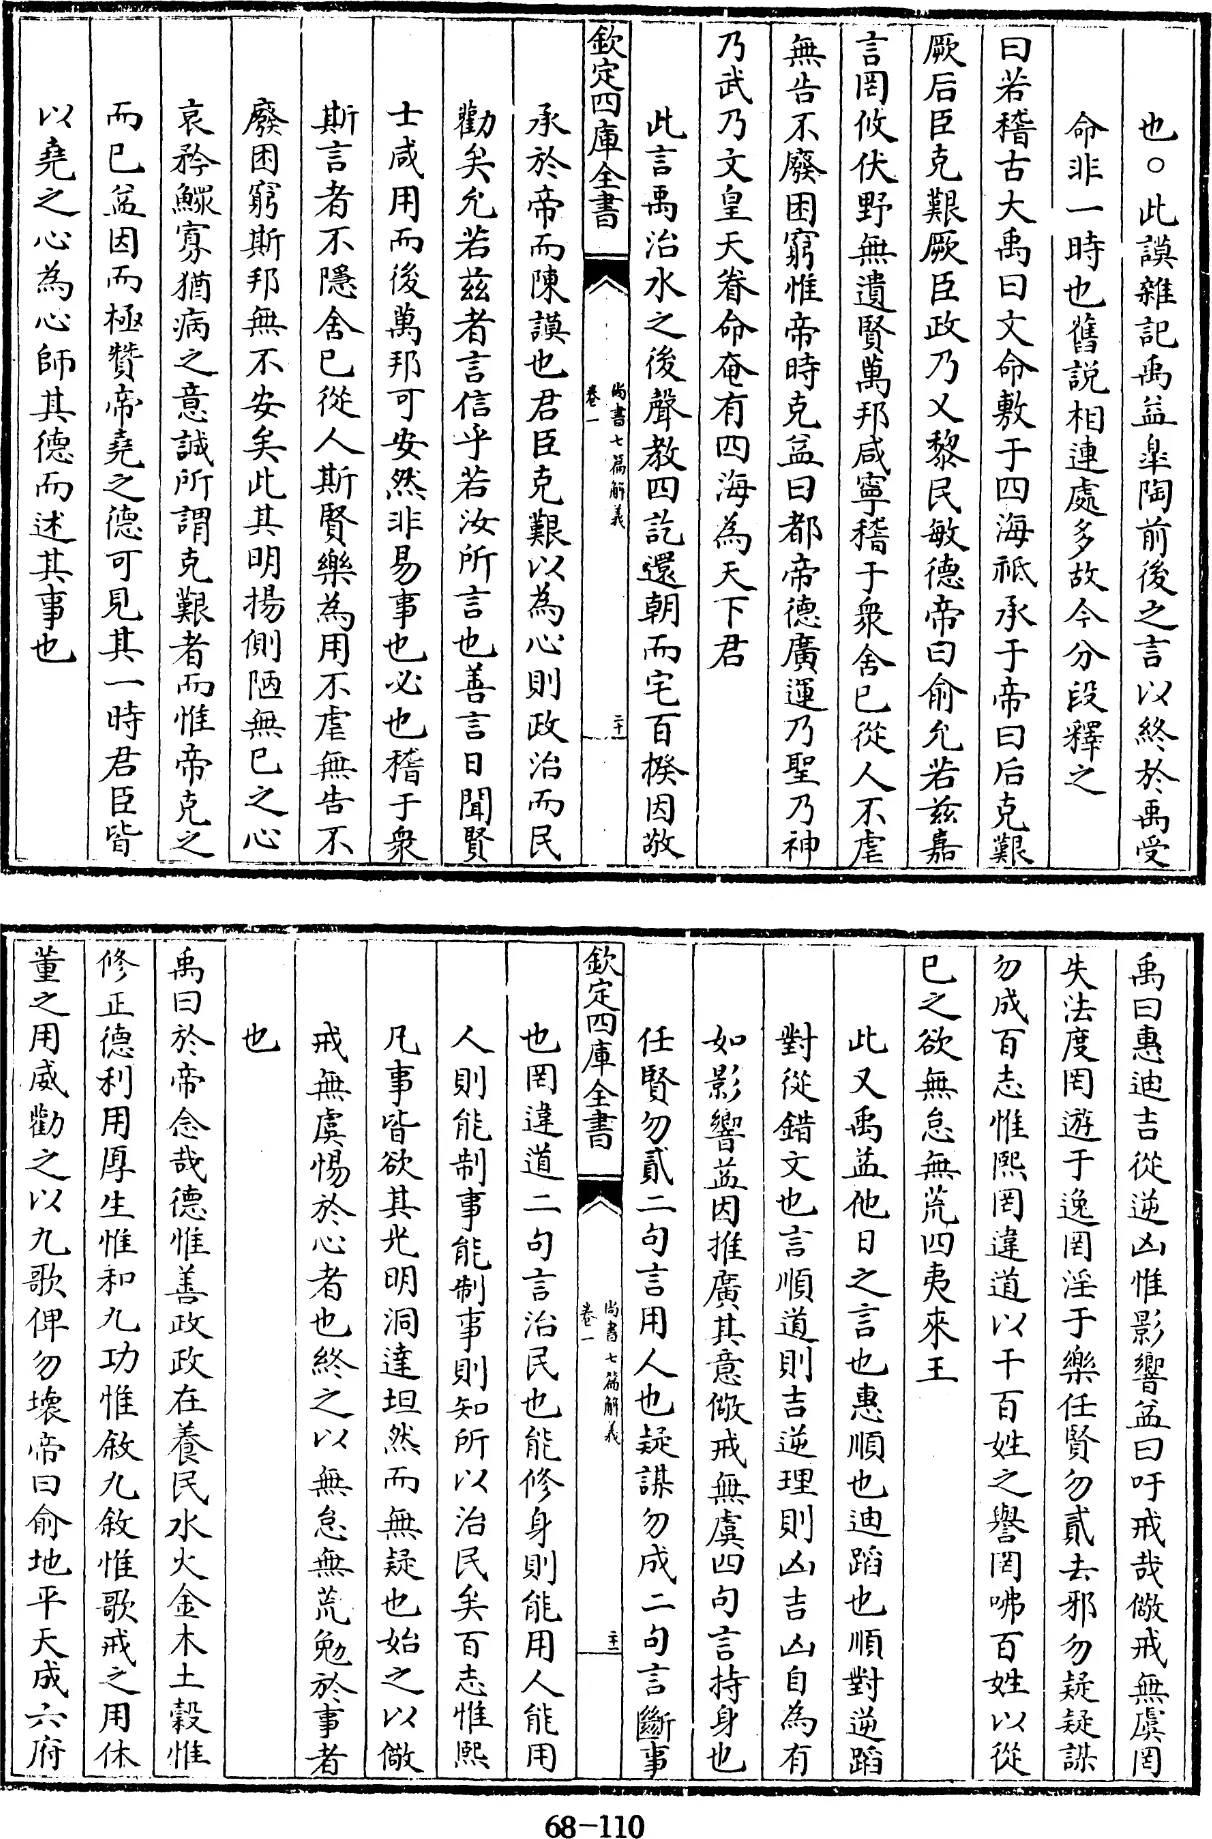 也○此謨雜記禹益臯陶前後之言以終於禹受
命非一時也舊説相連處多故今分段釋之
曰若稽古大禹曰文命敷于四海祗承于帝曰后克艱
厥后臣克艱厥臣政乃乂黎民敏德帝曰俞允若兹嘉
言罔攸伏野無遺賢萬邦咸寧稽于衆舍已從人不虐
無告不廢困窮惟帝時克益曰都帝德廣運乃聖乃神
乃武乃文皇天眷命奄有四海為天下君
此言禹治水之後聲教四訖還朝而宅百揆因敬
欽定四庫全書
尚書七篇解義
卷一
二十
承於帝而陳謨也君臣克艱以為心則政治而民
勸矣允若兹者言信乎若汝所言也善言日聞賢
士咸用而後萬邦可安然非易事也必也稽于衆
斯言者不隱舍已從人斯賢樂為用不虐無告不
廢困窮斯邦無不安矣此其明揚側陋無已之心
哀矜鰥寡猶病之意誠所謂克艱者而惟帝克之
而已益因而極贊帝堯之德可見其一時君臣皆
以堯之心為心師其德而述其事也
禹曰惠迪吉從逆凶惟影響益曰吁戒哉儆戒無虞罔
失法度罔遊于逸罔淫于樂任賢勿貳去邪勿疑疑謀
勿成百志惟熙罔違道以干百姓之譽罔咈百姓以從
已之欲無怠無荒四夷來王
此又禹益他日之言也惠順也迪蹈也順對逆蹈
對從錯文也言順道則吉逆理則凶吉凶自為有
如影響益因推廣其意儆戒無虞四句言持身也
任賢勿貳二句言用人也疑謀勿成二句言斷事
欽定四庫全書
尚書七篇解義
卷一
二十一
也罔違道二句言治民也能修身則能用人能用
人則能制事能制事則知所以治民矣百志惟熙
凡事皆欲其光明洞達坦然而無疑也始之以儆
戒無虞惕於心者也終之以無怠無荒勉於事者
也
禹曰於帝念哉德惟善政政在養民水火金木土穀惟
修正德利用厚生惟和九功惟敘九敘惟歌戒之用休
董之用威勸之以九歌俾勿壞帝曰俞地平天成六府
68-110